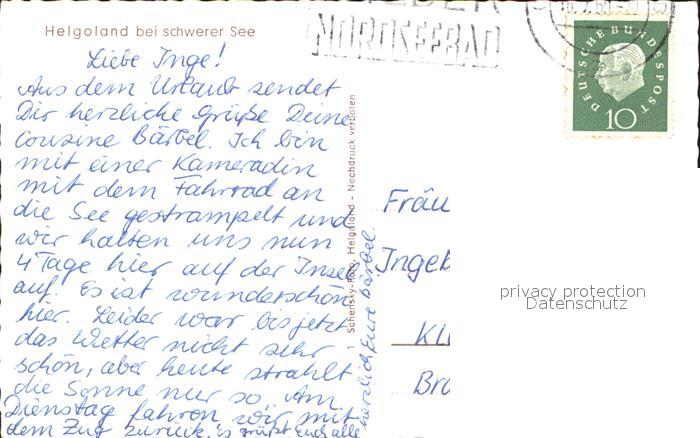 Helgoland bei schwerer See
NORDSEEBAD
DEUTSCHE BUNDESPOST
10
Liebe Inge!
Aus dem Urlaub sendet
Dir herzliche Grüße Deine
Cousine Bärbel. Ich bin
mit einer Kameradin
mit dem Fahrrad an
die See gestrampelt und
wir halten uns nun
4 Tage hier auf der Insel
auf. Es ist wunderschön
hier. Leider war bis jetzt
das Wetter nicht sehr
schön, aber heute strahlt
die Sonne nur so. Am
Dienstag fahren wir mit
dem Zug zurück. Es grüßt Euch alle
herzlich Eure Bärbel.
Schensky-Foto, Helgoland - Nachdruck verboten
Fräu
Ingeb
Kl
Bra
privacy protection
Datenschutz